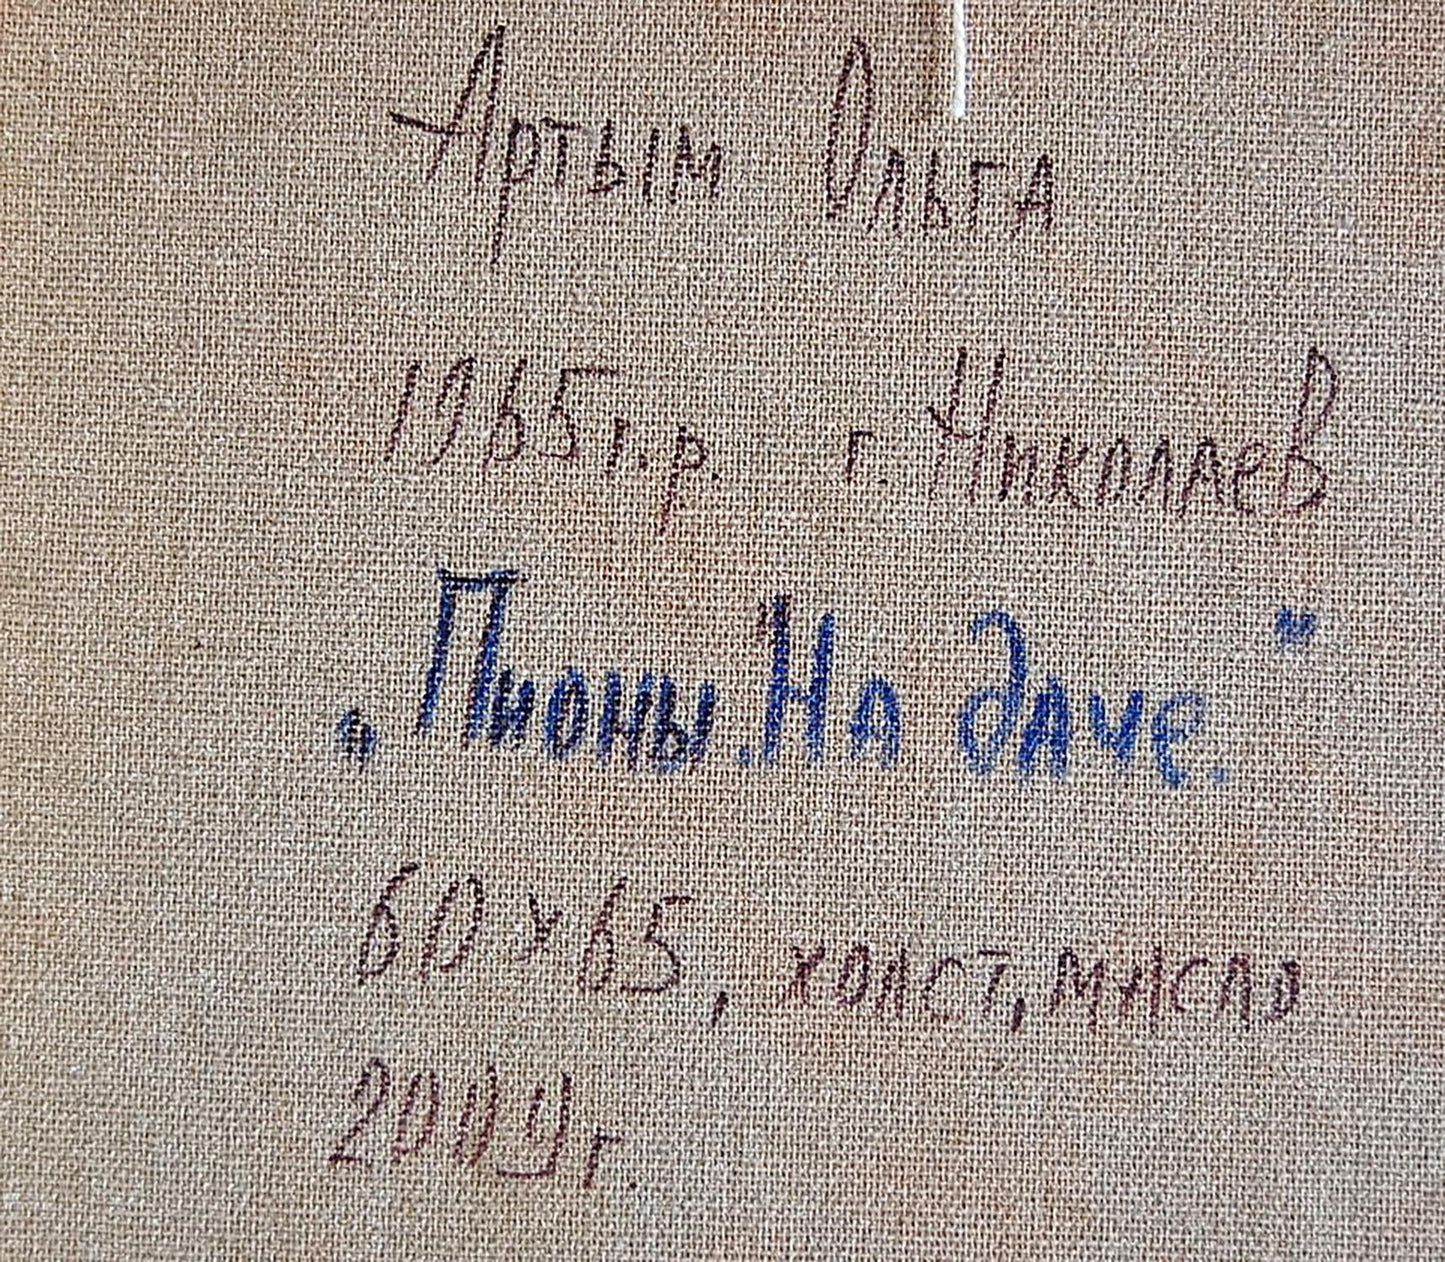 Артым Ольга
1965г.р. г. Николаев
„Пионы. На даче."
60×65, холст, масло
2009г.